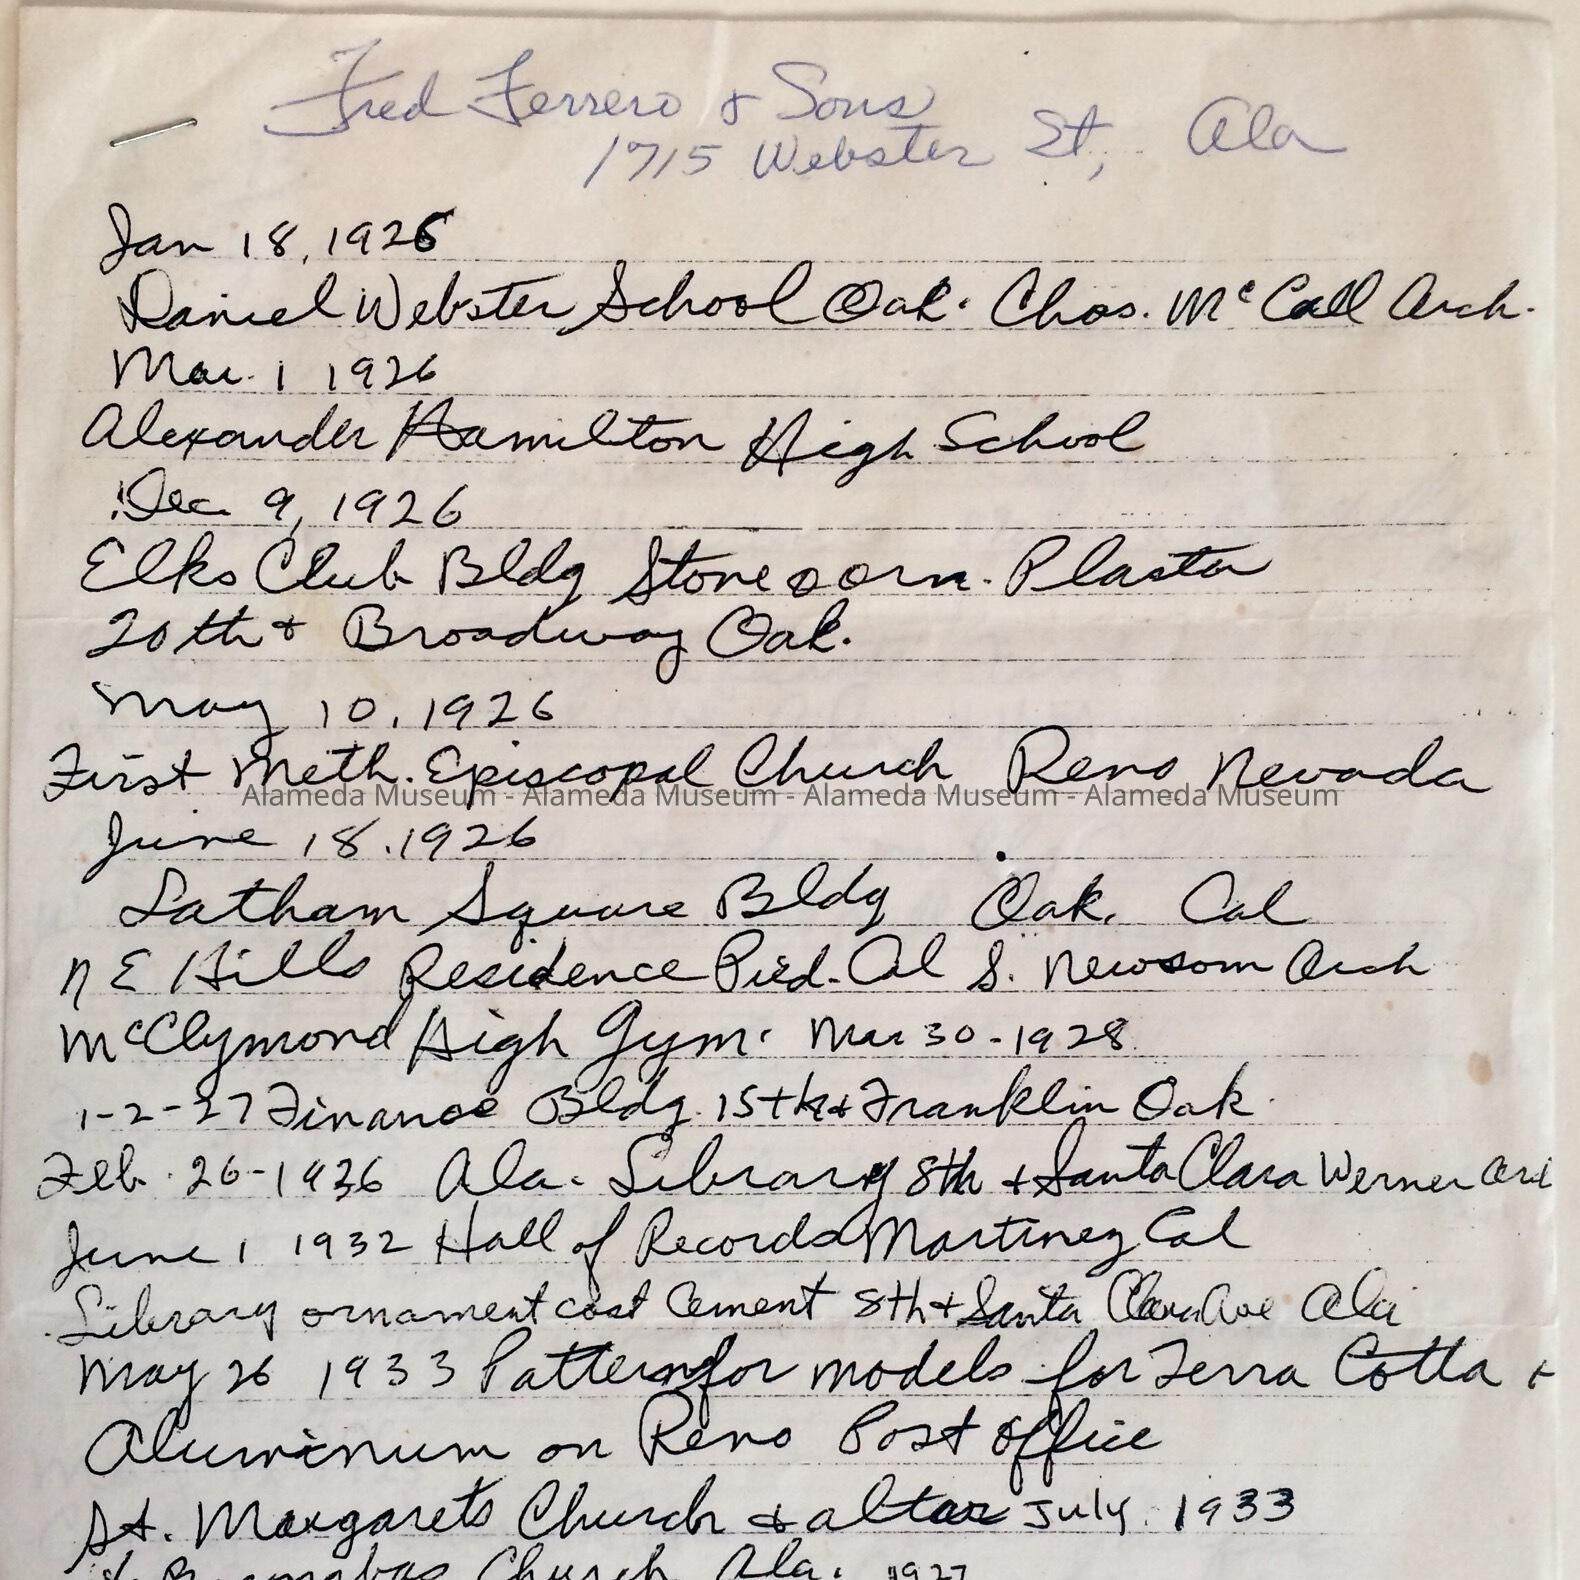 Fred Ferrero & Sons
1715 Webster St, Ala
Jan 18, 1926
Daniel Webster School Oak. Chas. McCall Arch.
Mar. 1 1926
Alexander Hamilton High School
Dec 9, 1926
Elks Club Bldg Stone & orn. Plaster
20th & Broadway Oak.
May 10, 1926
First Meth. Episcopal Church Reno Nevada
Alameda Museum - Alameda Museum - Alameda Museum - Alameda Museum
June 18, 1926
Latham Square Bldg Oak. Cal
N E Hills Residence Pied. Cal S. Newsom Arch
McClymond High Gym. Mar 30-1928
1-2-27 Finance Bldg. 15th & Franklin Oak.
Feb. 26-1936 Ala. Library 8th & Santa Clara Werner
June 1 1932 Hall of Records Martinez Cal
Library ornament cast Cement 8th & Santa Clara Ave Ala
May 26 1933 Pattern for models for Terra Cotta &
Aluminum on Reno Post office
St. Margarets Church & altar July 1933
Church Ala. 1927